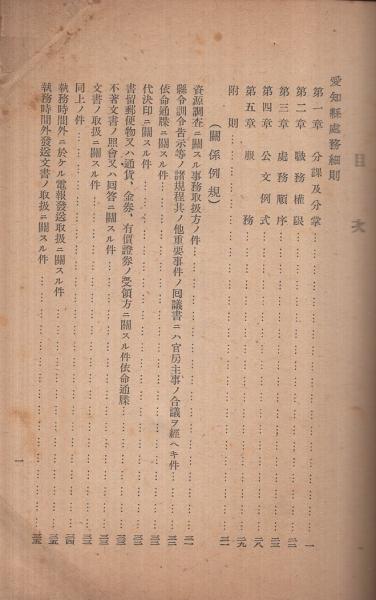 愛知縣處務細則
目次
第一章 分課及分掌 一
第二章 職務權限
第三章 處務順序
第四章 公文例式
第五章 服務
附則
(關係例規)
資源調査ニ關スル事務取扱方ノ件
縣令訓令告示等ノ諸規程其ノ他重要事件ノ回議書ニハ官房主事ノ合議ヲ經ヘキ件
依命通牒ニ關スル件
代決印ニ關スル件
書留郵便物又ハ通貨、金券、有價證券ノ受領方ニ關スル件依命通牒
不著文書ノ照會又ハ回答ニ關スル件
文書ノ取扱ニ關スル件
同上ノ件
執務時間外ニ於ケル電報發送取扱ニ關スル件
執務時間外發送文書ノ取扱ニ關スル件
一